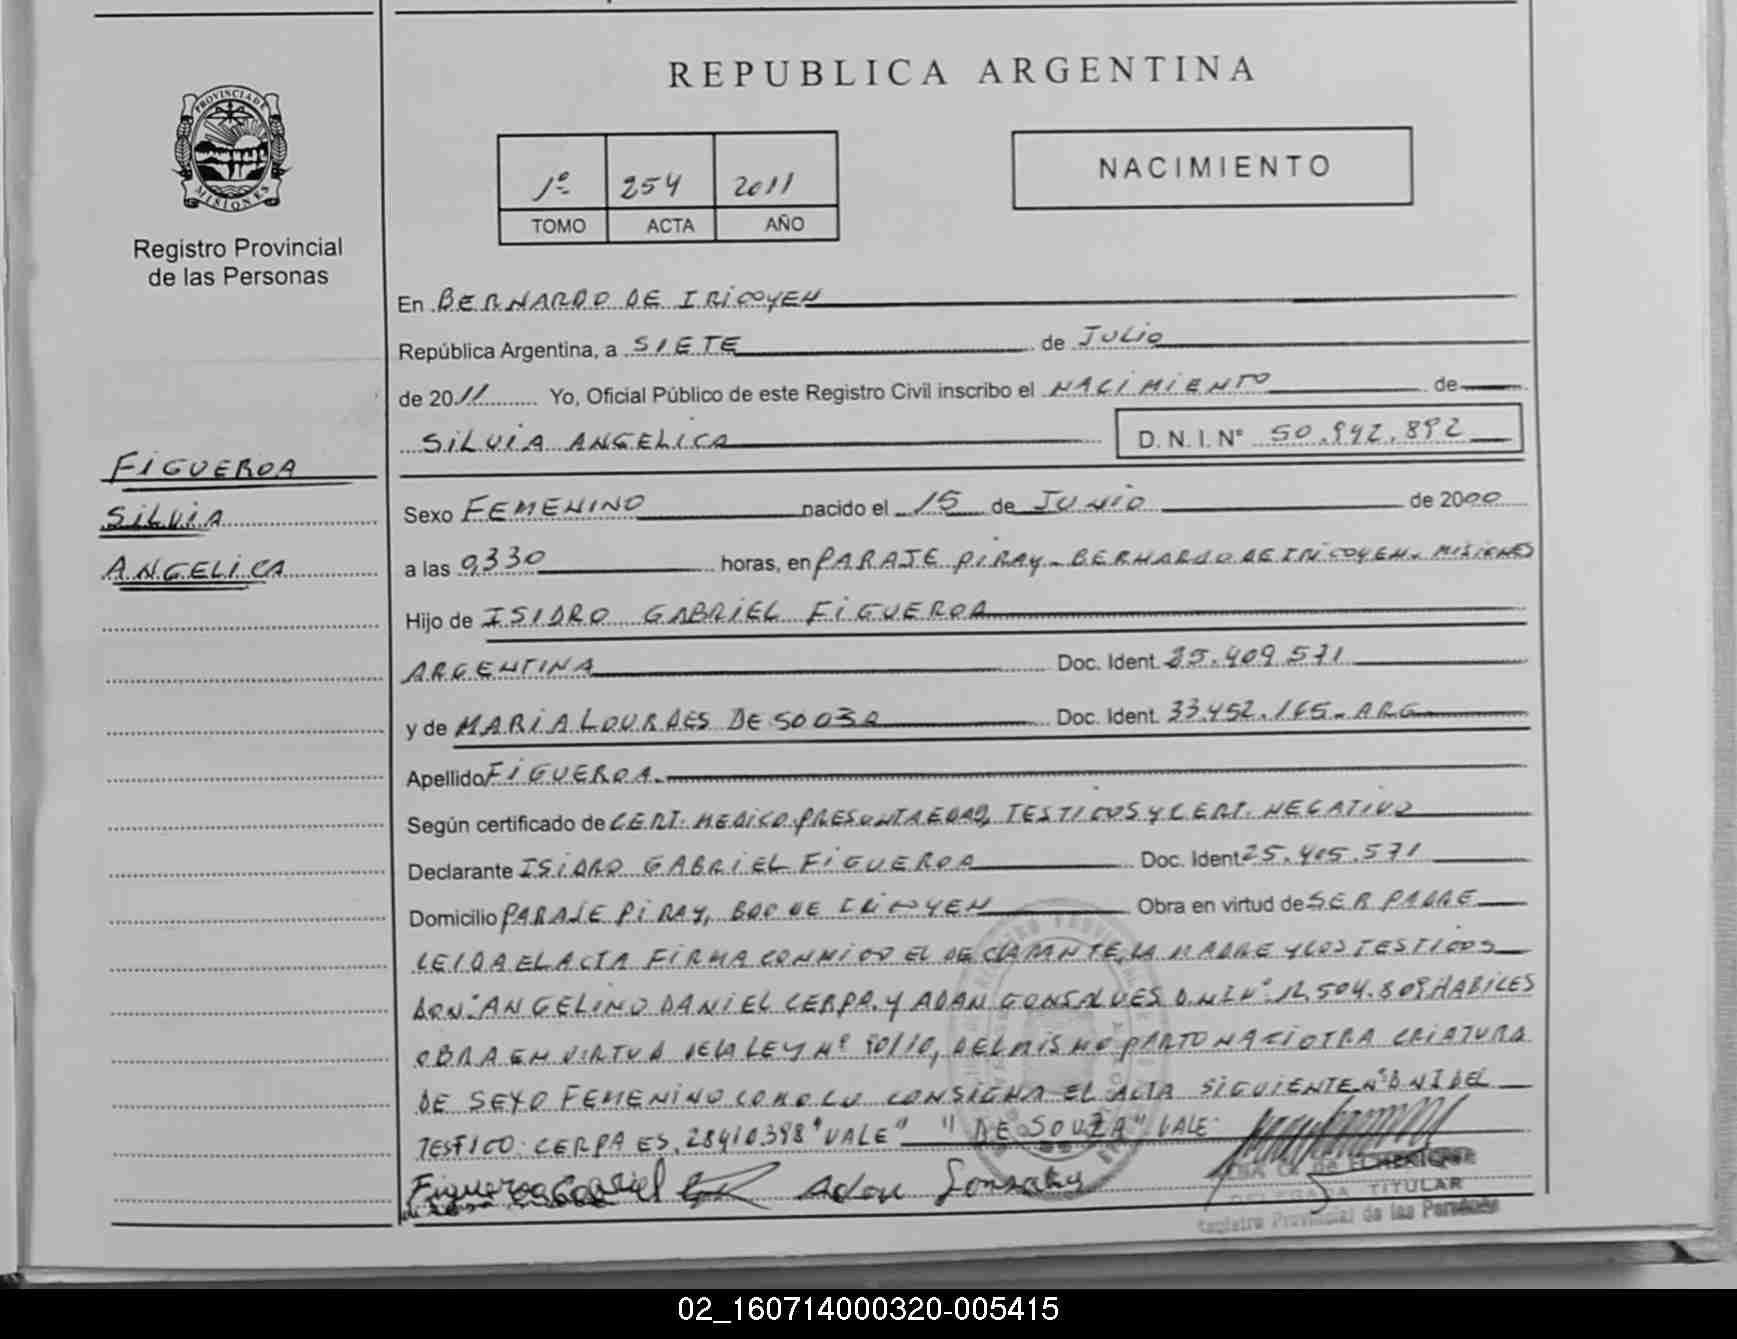 REPUBLICA ARGENTINA
PROVINCIA DE
MISIONES
Registro Provincial
de las Personas
1º 254 2011
TOMO ACTA AÑO
NACIMIENTO
En BERNARDO DE IRIGOYEN
República Argentina, a SIETE de JULIO
de 2011 Yo, Oficial Público de este Registro Civil inscribo el NACIMIENTO de
SILVIA ANGELICA D. N. I. Nº 50.942.892
FIGUEROA
SILVIA
ANGELICA
Sexo FEMENINO nacido el 15 de JUNIO de 2000
a las 9,330 horas, en PARAJE PIRAY - BERNARDO DE IRIGOYEN - MISIONES
Hijo de ISIDRO GABRIEL FIGUEROA
ARGENTINA Doc. Ident. 25.409.571
y de MARIA LOURDES DE Doc. Ident. 33.452.165 - ARG
Apellido FIGUEROA
Según certificado de CERT. MEDICO PRESUNTA EDAD, TESTIGOS Y CERT. NEGATIVO
Declarante ISIDRO GABRIEL FIGUEROA Doc. Ident 25.405.571
Domicilio PARAJE PIRAY, BDO DE IRIGOYEN Obra en virtud de SER PADRE
LEIDA EL ACTA FIRMA CONMIGO EL DECLARANTE, LA MADRE Y LOS TESTIGOS
DON: ANGELINO DANIEL CERPA Y ADAN GONSALVES D.N.I Nº 12.504.809 HABILES
OBRA EN VIRTUD DE LA LEY Nº 90/10, DEL MISMO PARTO NACIO OTRA CRIATURA
DE SEXO FEMENINO COMO LO CONSIGNA EL ACTA SIGUIENTE Nº D N I DEL
TESTIGO: CERPA ES. 28410398 "VALE" "DE SOUZA" VALE
Figueroa Gabriel Adan Gonsalves
DELEGADA TITULAR
Registro Provincial de las Personas
02_160714000320-005415